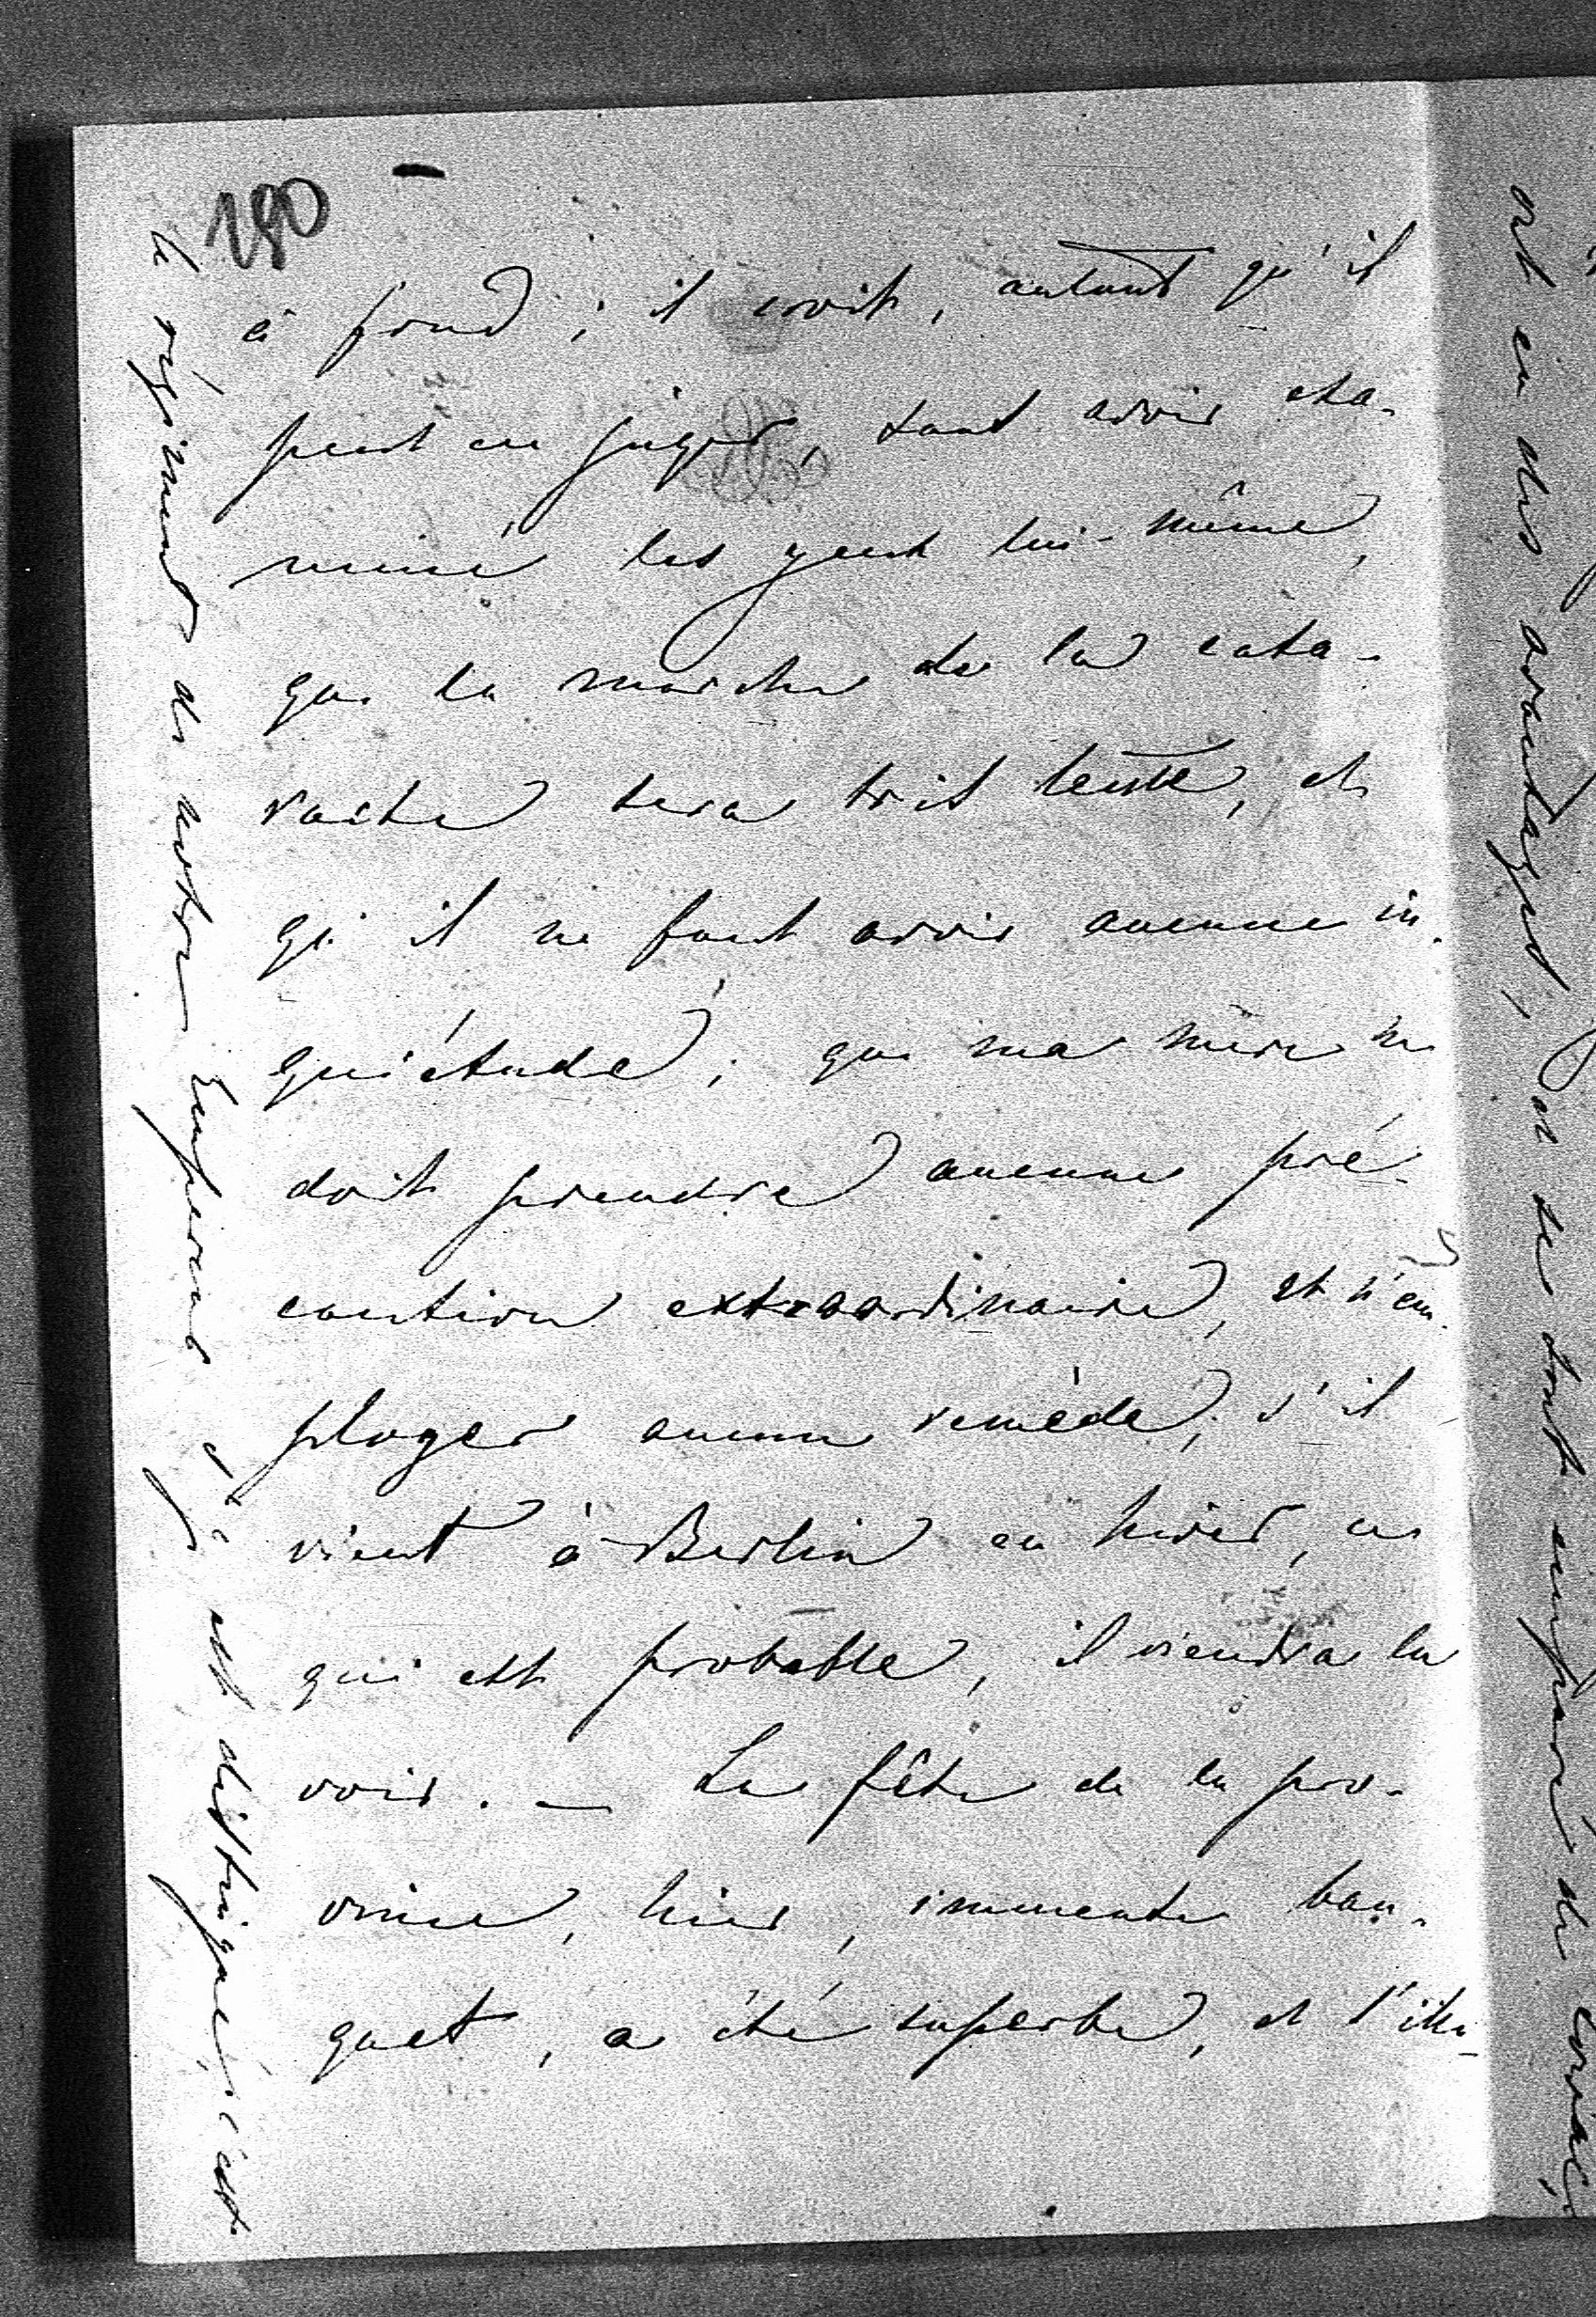 180
à fond ; il croit, autant qu'il
peut en juger, sans avoir exa-
miné les yeux lui-même,
que la marche de la cata-
racte sera très lente, et
qu'il ne faut avoir aucune in-
quiétude ; que ma mère ne
doit prendre aucune pré-
caution extraordinaire, et n'em-
ployer aucun remède ; s'il
vient à Berlin en hiver, ce
qui est probable, il viendra la
voir. — La fête de la pro-
vince, hier, immense ban-
quet, a été superbe, et l'illu-
le régiment de notre Empereur s'y est distingué ; c'est
ont eu des avantages, on se